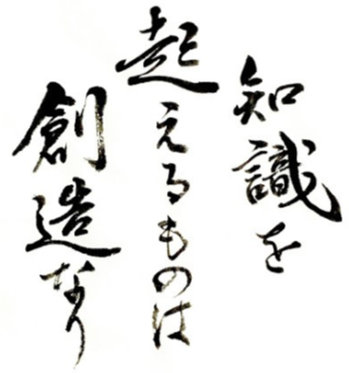 知識を
超えるものは
創造なり